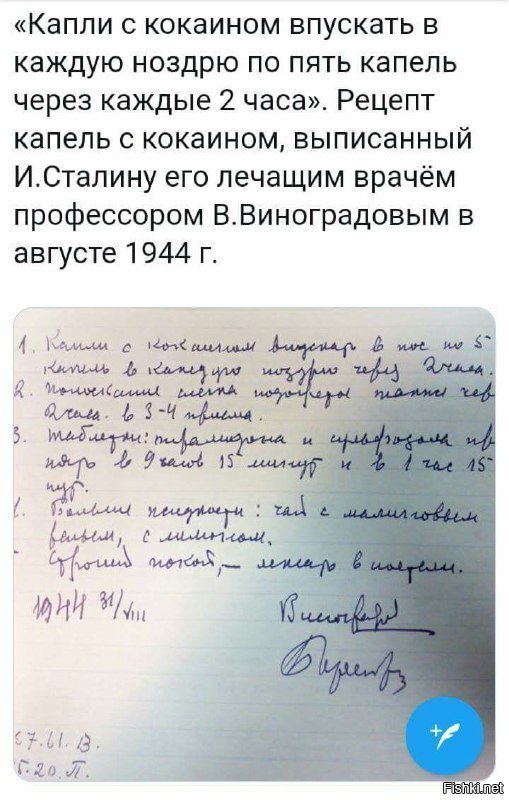 «Капли с кокаином впускать в
каждую ноздрю по пять капель
через каждые 2 часа». Рецепт
капель с кокаином, выписанный
И.Сталину его лечащим врачём
профессором В.Виноградовым в
августе 1944 г.
1. Капли с кокаином впускать в нос по 5
капель в каждую ноздрю через 2 часа.
2. Полоскание слегка подогретое также чер
2 часа. в 3-4 приема.
3. Таблетки: пирамидона и сульфазола пр
в 9 часов 15 минут и в 1 час 15
Больше жидкости: чай с малиновым
с лимоном.
Строгий покой, – лежать в постели.
1944 31/VIII
Виноградов
67.61.В.
Fishki.net